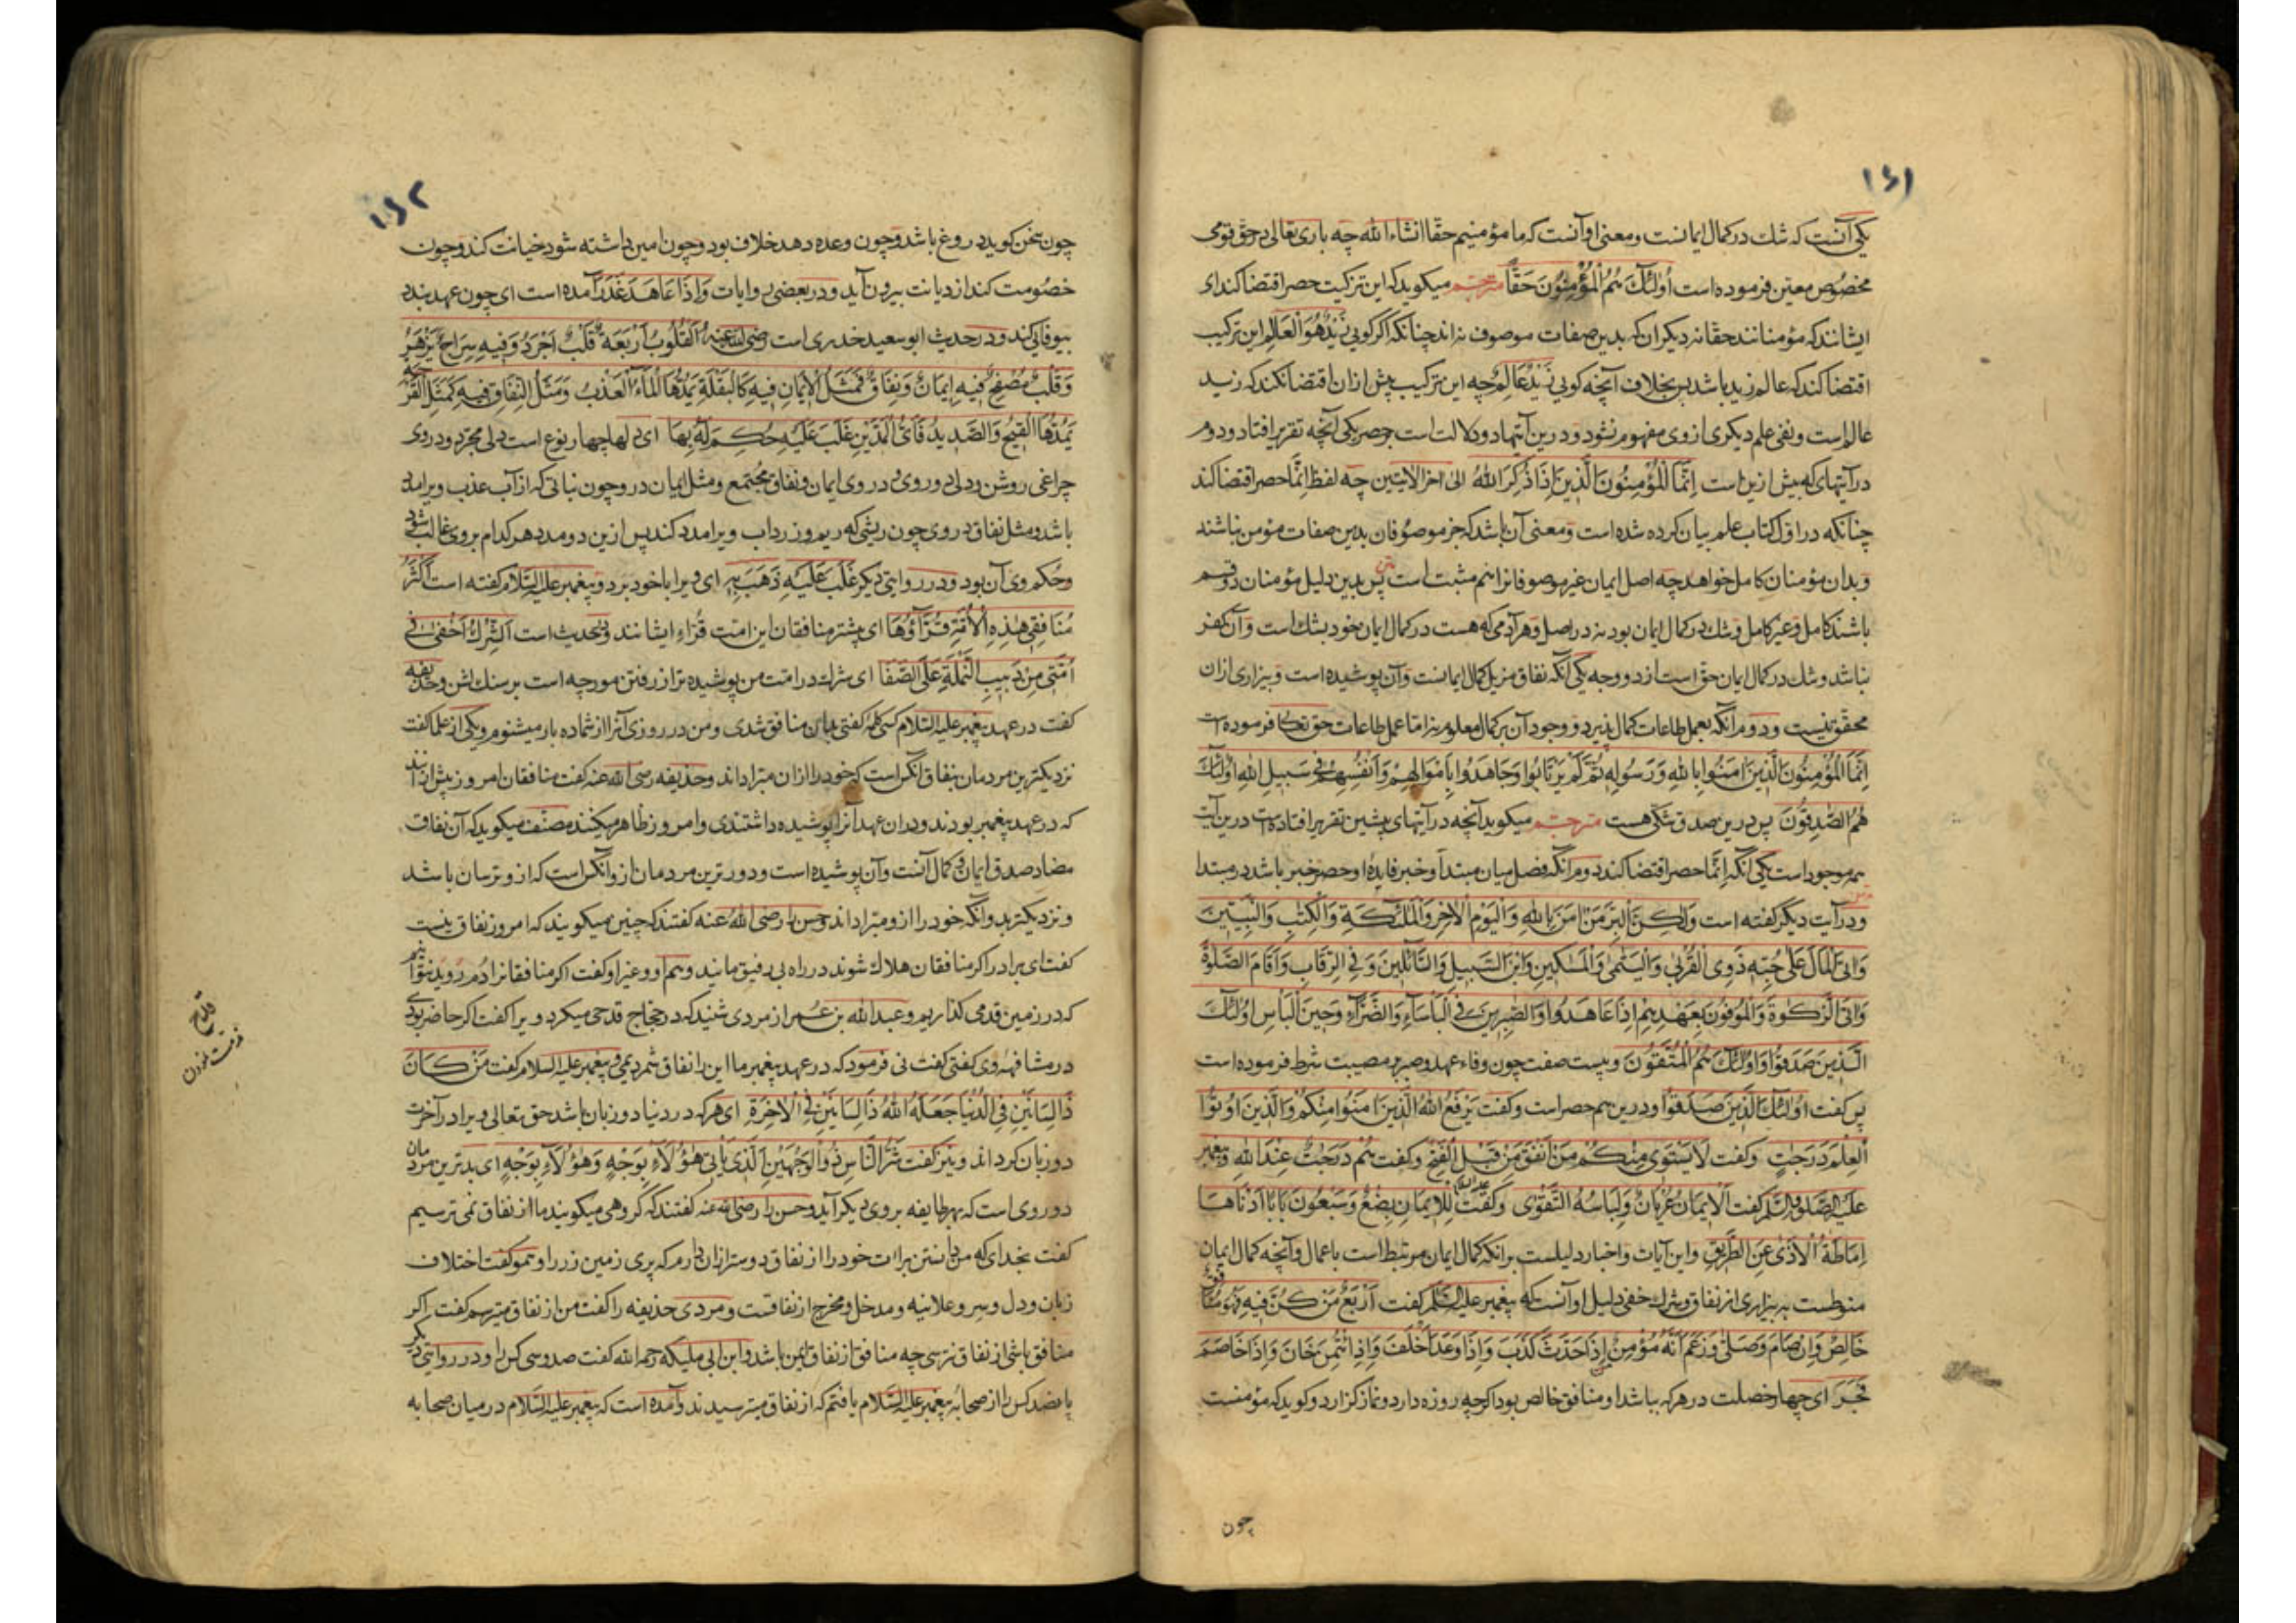 ۱۶۱
یکی آنست که شك در کمال ایمانست و معنی او آنست که ما مؤمنیم حقّا انشاء الله چه باری تعالی در حق قومی
مخصوص معین فرموده است اُولٰئِكَ هُمُ الْمُؤْمِنُونَ حَقًّا مترجم میکوید که این ترکیب حصر اقتضا کند ای
ایشانند که مؤمنانند حقّا نه دیکران که بدین صفات موصوف نه اند چنانکه اکر کویی زَیْدٌ هُوَ الْعَالِمُ این ترکیب
اقتضا کند که عالم زید باشد پس بخلاف آنچه کویی زَیْدٌ عَالِمٌ چه این ترکیب بیش ازان اقتضا نکند که زید
عالم است و نفی علم دیکری از وی مفهوم نشود و درین آیتها دو دلالت است بر حصر یکی آنچه تقریر افتاد و دوم
در آیتهای که پیش ازین است اِنَّمَا الْمُؤْمِنُونَ الَّذِینَ اِذَا ذُکِرَ اللهُ الی اخر الایتین چه لفظ اِنَّمَا حصر اقتضا کند
چنانکه در اوّل کتاب علم بیان کرده شده است و معنی آن باشد که جز موصوفان بدین صفات مؤمن نباشند
و بدان مؤمنان کامل خواهد چه اصل ایمان غیر موصوفانرا هم مثبت است پس بدین دلیل مؤمنان دو قسم
باشند کامل و غیر کامل و شك در کمال ایمان بود نه در اصل و هر آدمی که هست در کمال ایمان خود بشك است و آن کفر
نباشد و شك در کمال ایمان حق است از دو وجه یکی آنکه نفاق مزیل کمال ایمانست و آن پوشیده است و بیزاری ازان
محقق نیست و دوم آنکه بعمل طاعات کمال پذیرد و وجود آن بر کمال معلوم نه امّا عمل طاعات حق تعالی فرموده است
اِنَّمَا الْمُؤْمِنُونَ الَّذِینَ اٰمَنُوا بِاللهِ وَرَسُولِهِ ثُمَّ لَمْ یَرْتَابُوا وَجَاهَدُوا بِاَمْوَالِهِمْ وَاَنْفُسِهِمْ فِی سَبِیلِ اللهِ اُولٰئِكَ
هُمُ الصّٰدِقُونَ پس درین صدق شکی هست مترجم میکوید آنچه در آیتهای پیشین تقریر افتاده است درین آیت
هم موجود است یکی آنکه اِنَّمَا حصر اقتضا کند دوم آنکه فصل میان مبتدأ و خبر فایدهٔ او حصر خبر باشد در مبتدا
و در آیت دیکر کفته است وَلٰکِنَّ الْبِرَّ مَنْ اٰمَنَ بِاللهِ وَالْیَوْمِ الْاٰخِرِ وَالْمَلٰئِکَةِ وَالْکِتٰبِ وَالنَّبِیّٖنَ
وَاٰتَی الْمَالَ عَلٰی حُبِّهِ ذَوِی الْقُرْبٰی وَالْیَتٰمٰی وَالْمَسٰکِینَ وَابْنَ السَّبِیلِ وَالسَّآئِلِینَ وَفِی الرِّقَابِ وَاَقَامَ الصَّلٰوةَ
وَاٰتَی الزَّکٰوةَ وَالْمُوفُونَ بِعَهْدِهِمْ اِذَا عَاهَدُوا وَالصّٰبِرِینَ فِی الْبَاْسَآءِ وَالضَّرَّآءِ وَحِینَ الْبَاْسِ اُولٰئِكَ
الَّذِینَ صَدَقُوا وَاُولٰئِكَ هُمُ الْمُتَّقُونَ و بیست صفت چون وفاء عهد و صبر بر مصیبت شرط فرموده است
پس کفت اُولٰئِكَ الَّذِینَ صَدَقُوا و درین هم حصر است و کفت یَرْفَعِ اللهُ الَّذِینَ اٰمَنُوا مِنْکُمْ وَالَّذِینَ اُوتُوا
الْعِلْمَ دَرَجٰتٍ و کفت لَا یَسْتَوِی مِنْکُمْ مَنْ اَنْفَقَ مِنْ قَبْلِ الْفَتْحِ و کفت هُمْ دَرَجٰتٌ عِنْدَ اللهِ و پیغمبر
علیه الصلوة والسلام کفت اَلْاِیمَانُ عُرْیَانٌ وَلِبَاسُهُ التَّقْوٰی و کفت علیه السلام اَلْاِیمَانِ بِضْعٌ وَسَبْعُونَ بَابًا اَدْنَاهَا
اِمَاطَةُ الْاَذٰی عَنِ الطَّرِیقِ و این آیات و اخبار دلیلست برانکه کمال ایمان مرتبط است باعمال و آنچه کمال ایمان
منوطست به بیزاری از نفاق و شرك خفی دلیل او آنست که پیغمبر علیه السلم کفت اَرْبَعٌ مَنْ کُنَّ فِیهِ فَهُوَ مُنَافِقٌ
خَالِصٌ وَاِنْ صَامَ وَصَلّٰی وَزَعَمَ اَنَّهُ مُؤْمِنٌ اِذَا حَدَّثَ کَذَبَ وَاِذَا وَعَدَ اَخْلَفَ وَاِذَا ائْتُمِنَ خَانَ وَاِذَا خَاصَمَ
فَجَرَ ای چهار خصلت در هر که باشد او منافق خالص بود اکرچه روزه دارد و نماز کزارد و کوید که مؤمنست
چون
۱۶۲
چون سخن کوید دروغ باشد و چون وعده دهد خلاف بود و چون امین داشته شود خیانت کند و چون
خصومت کند از دیانت بیرون آید و در بعضی روایات وَاِذَا عَاهَدَ غَدَرَ آمده است ای چون عهد بندد
بیوفائی کند و در حدیث ابو سعید خدری است رضی الله عنه اَلْقُلُوبُ اَرْبَعَةٌ قَلْبٌ اَجْرَدُ وَفِیهِ سِرَاجٌ یَزْهَرُ
وَقَلْبٌ مُصْفَحٌ فِیهِ اِیمَانٌ وَنِفَاقٌ فَمَثَلُ الْاِیمَانِ فِیهِ کَالْبَقْلَةِ یَمُدُّهَا الْمَاءُ الْعَذْبُ وَمَثَلُ النِّفَاقِ فِیهِ کَمَثَلِ الْقَرْحَةِ
یَمُدُّهَا الْقَیْحُ وَالصَّدِیدُ فَاَیُّ الْمَدَّیْنِ غَلَبَ عَلَیْهِ حُکِمَ لَهُ بِهَا ای دلها چهار نوع است دلی مجرّد و در وی
چراغی روشن و دلی دو روی و در وی ایمان و نفاق مجتمع و مثل ایمان درو چون نباتی که از آب عذب ویرا مدد
باشد و مثل نفاق در وی چون ریشی که ریم و زرداب ویرا مدد کند پس ازین دو مدد هر کدام بر وی غالب شود
و حکم وی آن بود و در روایتی دیکر غَلَبَ عَلَیْهِ ذَهَبَ بِهِ ای ویرا با خود برد و پیغمبر علیه السلام کفته است اَکْثَرُ
مُنَافِقِی هٰذِهِ الْاُمَّةِ قُرَّآؤُهَا ای بیشتر منافقان این امّت قرّاء ایشانند و در حدیث است اَلشِّرْكُ اَخْفٰی فِی
اُمَّتِی مِنْ دَبِیبِ النَّمْلَةِ عَلَی الصَّفَا ای شرك در امّت من پوشیده تر از رفتن مورچه است بر سنك لشن و حذیفه
کفت در عهد پیغمبر علیه السلام کسی کلمه کفتی بدان منافق شدی و من در روزی آنرا از شما ده بار میشنوم و یکی از علما کفت
نزدیکترین مردمان بنفاق آنکس است که خود را ازان مبرّا داند و حذیفه رضی الله عنه کفت منافقان امروز بیش ازانند
که در عهد پیغمبر بودند و دران عهد آنرا پوشیده داشتندی و امروز ظاهر میکنند مصنّف میکوید که آن نفاق
مضاد صدق ایمان و کمال آنست و آن پوشیده است و دورترین مردمان ازو آنکس است که ازو ترسان باشد
و نزدیکتر بدو آنکه خود را ازو مبرّا داند و حسن را رضی الله عنه کفتند که چنین میکویند که امروز نفاق نیست
کفت ای برادر اکر منافقان هلاك شوند در راه بی رفیق مانید و هم او و غیر او کفت اکر منافقانرا دم روید نتوانیم
که در زمین قدمی کذاریم و عبد الله بن عمر از مردی شنید که در حجّاج قدحی میکرد ویرا کفت اکر حاضر بودی
در مشافهه وی کفتی کفت نی فرمود که در عهد پیغمبر ما این را نفاق شمردیمی و پیغمبر علیه السلام کفت مَنْ کَانَ
ذَا لِسَانَیْنِ فِی الدُّنْیَا جَعَلَهُ اللهُ ذَا لِسَانَیْنِ فِی الْاٰخِرَةِ ای هر که در دنیا دو زبان باشد حق تعالی ویرا در آخرت
دو زبان کرداند و نیز کفت شَرُّ النَّاسِ ذُو الْوَجْهَیْنِ اَلَّذِی یَاْتِی هٰؤُلَاءِ بِوَجْهٍ وَهٰؤُلَاءِ بِوَجْهٍ ای بدترین مردمان
دو روی است که بهر طایفه بروی دیکر آید و حسن را رضی الله عنه کفتند که کروهی میکویند ما از نفاق نمی ترسیم
کفت بخدای که من دانستن براات خود را از نفاق دوستر ازان دارم که پری زمین زر را و هم کفت اختلاف
زبان و دل و سر و علانیه و مدخل و مخرج از نفاقست و مردی حذیفه را کفت من از نفاق میترسم کفت اکر
منافق باشی از نفاق نترسی چه منافق از نفاق ایمن باشد و ابن ابی ملیکه رحمه الله کفت صد و سی کس را و در روایتی دیکر
پانصد کس را از صحابهٔ پیغمبر علیه السلام یافتم که از نفاق میترسیدند و آمده است که پیغمبر علیه السلام در میان صحابه